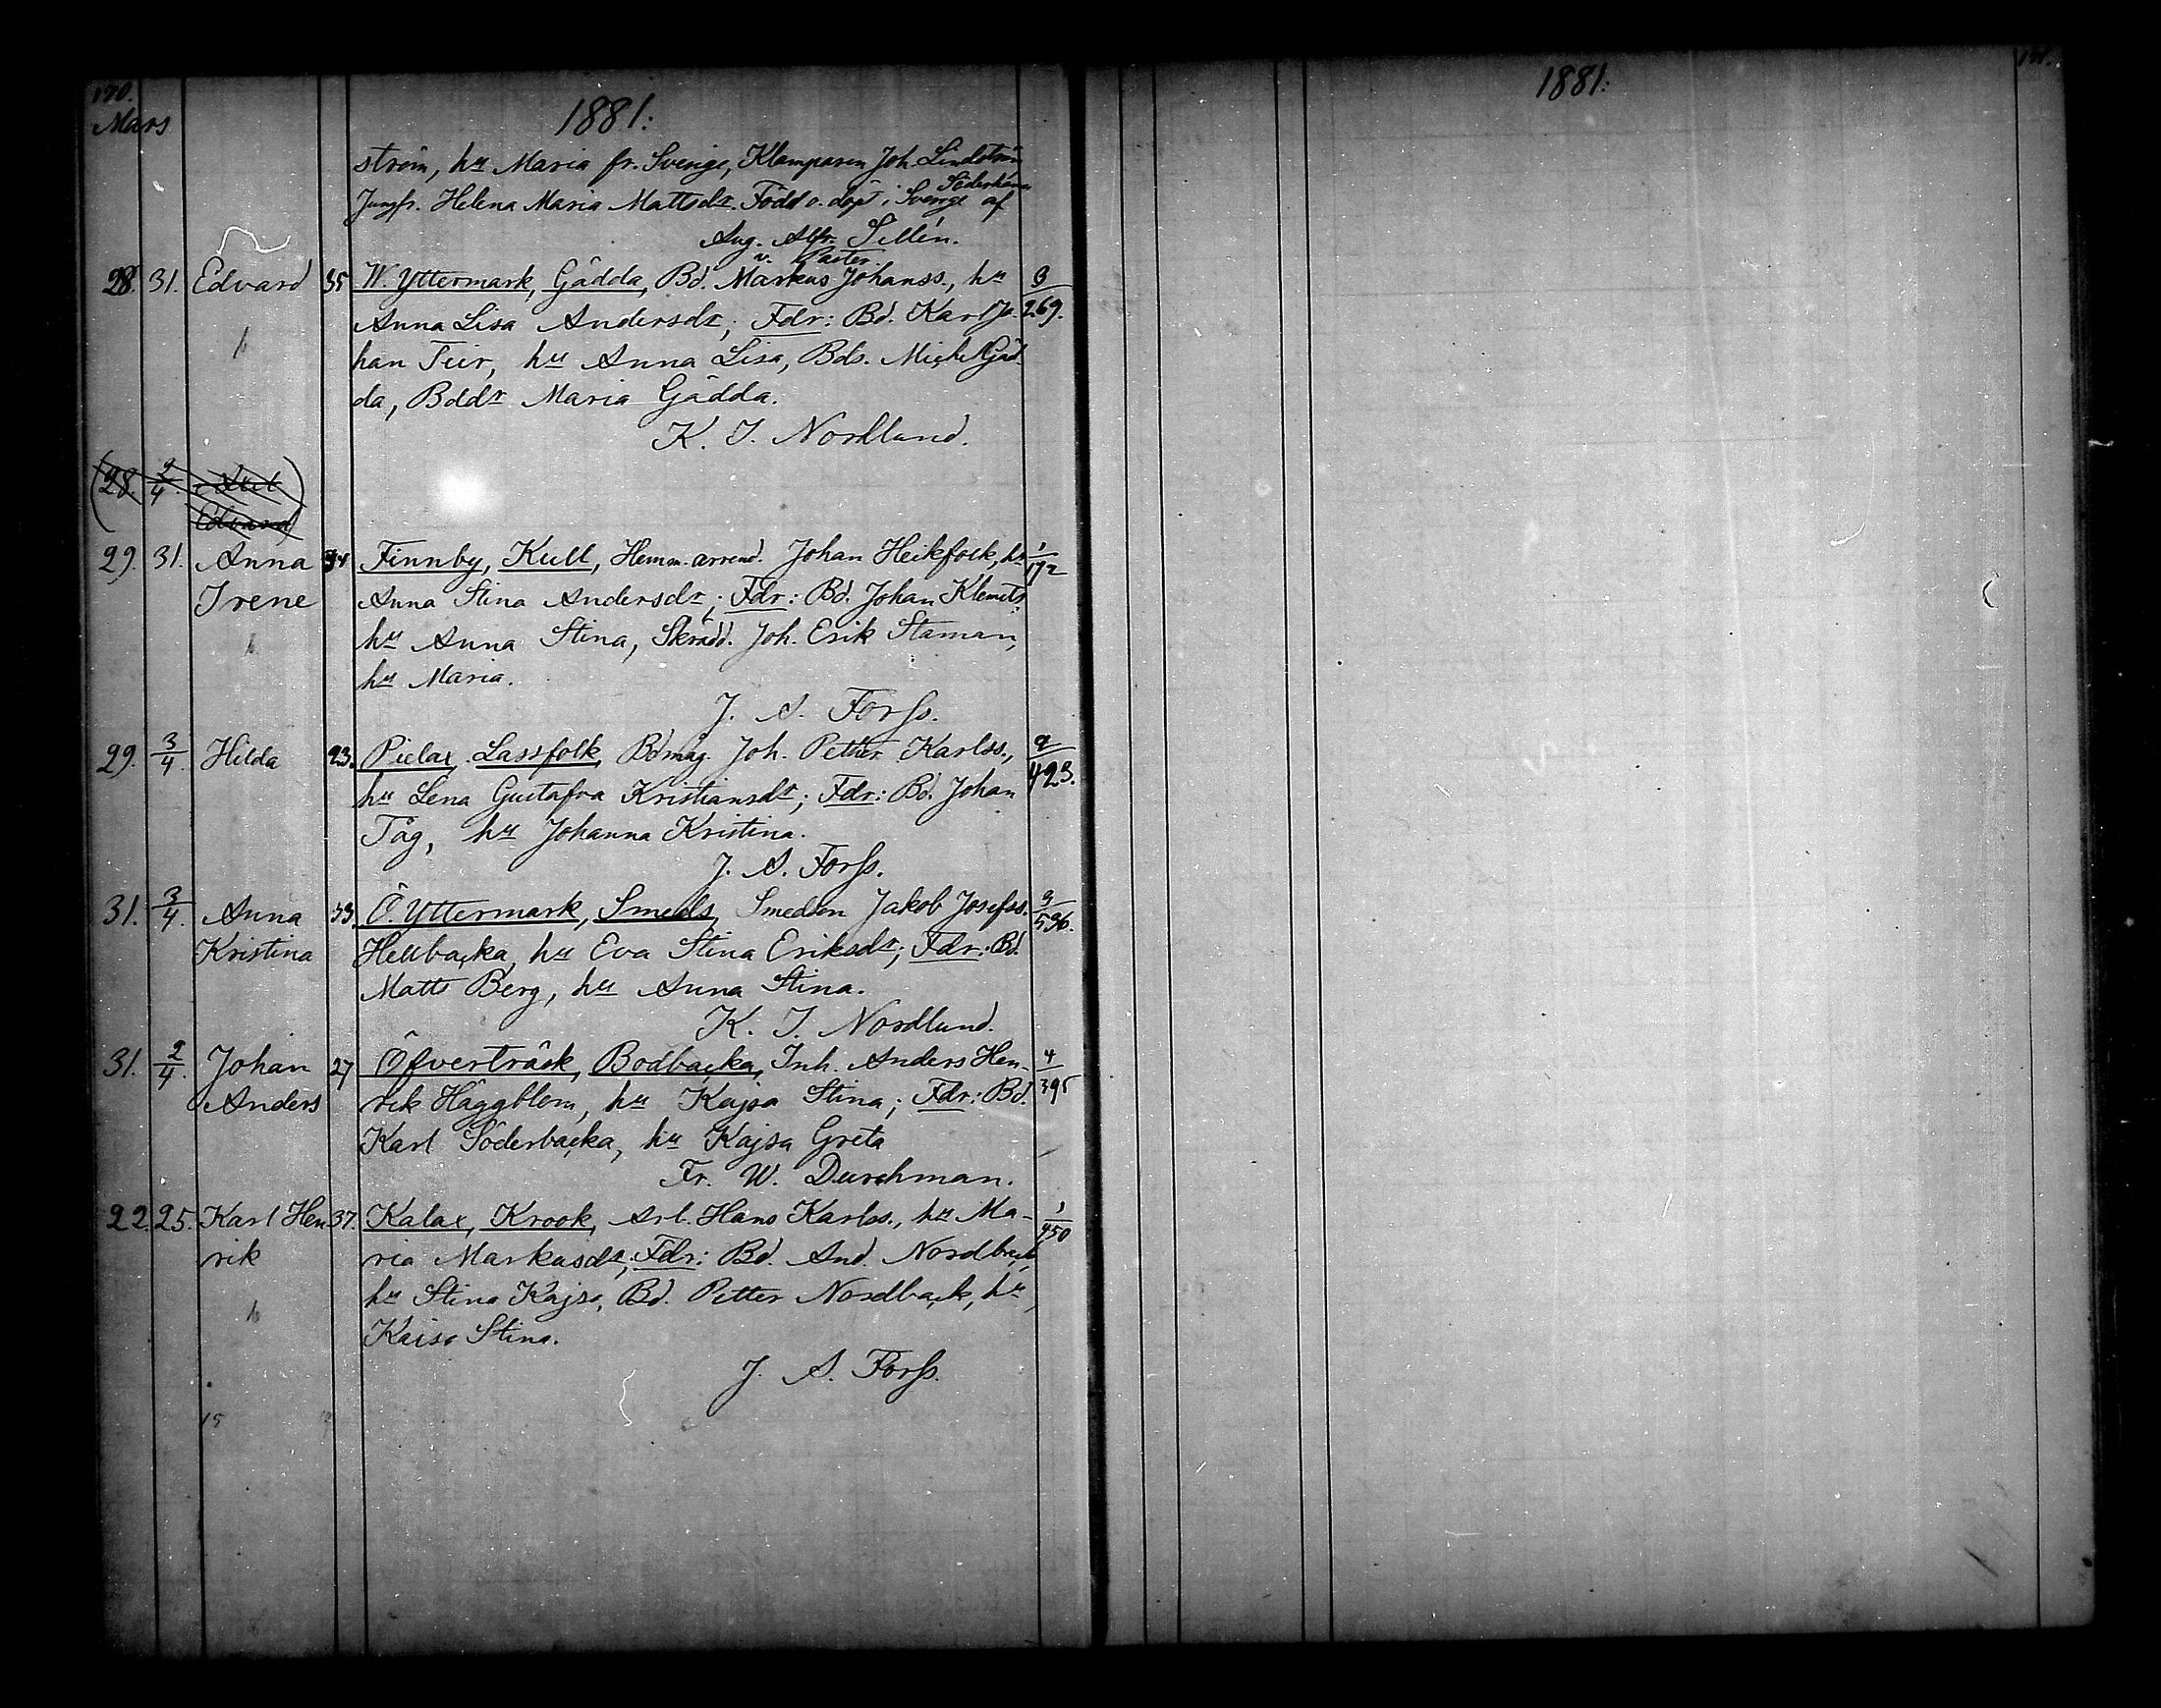 170.
Mars
1881:
ström, hu Maria fr. Sverige, Klamparen Joh. Lindström
Jungfr. Helena Maria Mattsdr. Född o. döpt i Sverige Söderhamn af
Aug. Alfr. Sellén.
v. Pastor.
28. 31. Edvard 35 W. Yttermark, Gädda, Bd. Markus Johanss., hu 3/269.
Anna Lisa Andersdr; Fdr: Bd. Karl Jo-
han Teir, hu Anna Lisa, Bds. Michel Gäd-
da, Bddr Maria Gädda.
K. J. Nordlund.
(28. 2/4. Axel
Edvard)
29. 31. Anna 34 Finnby, Kull, Hemm. arrend. Johan Heikfolk, hu 1/172
Irene Anna Stina Andersdr; Fdr: Bd. Johan Klemets,
hu Anna Stina, Skrädd. Joh. Erik Staman,
hu Maria.
J. A. Forss.
29. 3/4. Hilda 23. Pielax, Lassfolk, Bdmåg. Joh. Petter Karlss., 2/423.
hu Lena Gustafva Kristiansdr; Fdr: Bd. Johan
Tåg, hu Johanna Kristina.
J. A. Forss.
31. 3/4. Anna 33. Ö. Yttermark, Smeds, Smeden Jakob Josefss. 3/596.
Kristina Hellbacka, hu Eva Stina Eriksdr; Fdr: Bd.
Matts Berg, hu Anna Stina.
K. J. Nordlund.
31. 2/4. Johan 27 Öfverträsk, Bodbacka, Inh. Anders Hen- 4/395
Anders rik Häggblom, hu Kajsa Stina; Fdr: Bd.
Karl Söderbacka, hu Kajsa Greta
Fr. W. Durchman.
22. 25. Karl Hen 37. Kalax, Krook, Arb. Hans Karlss., hu Ma- 1/450
rik ria Markusdr; Fdr: Bd. And. Nordback,
hu Stina Kajsa, Bd. Petter Nordback, hu
Kaisa Stina.
J. A. Forss.
15
1881:
171.